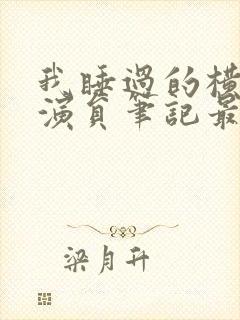 我睡過的橫
演員筆記最
梁月升